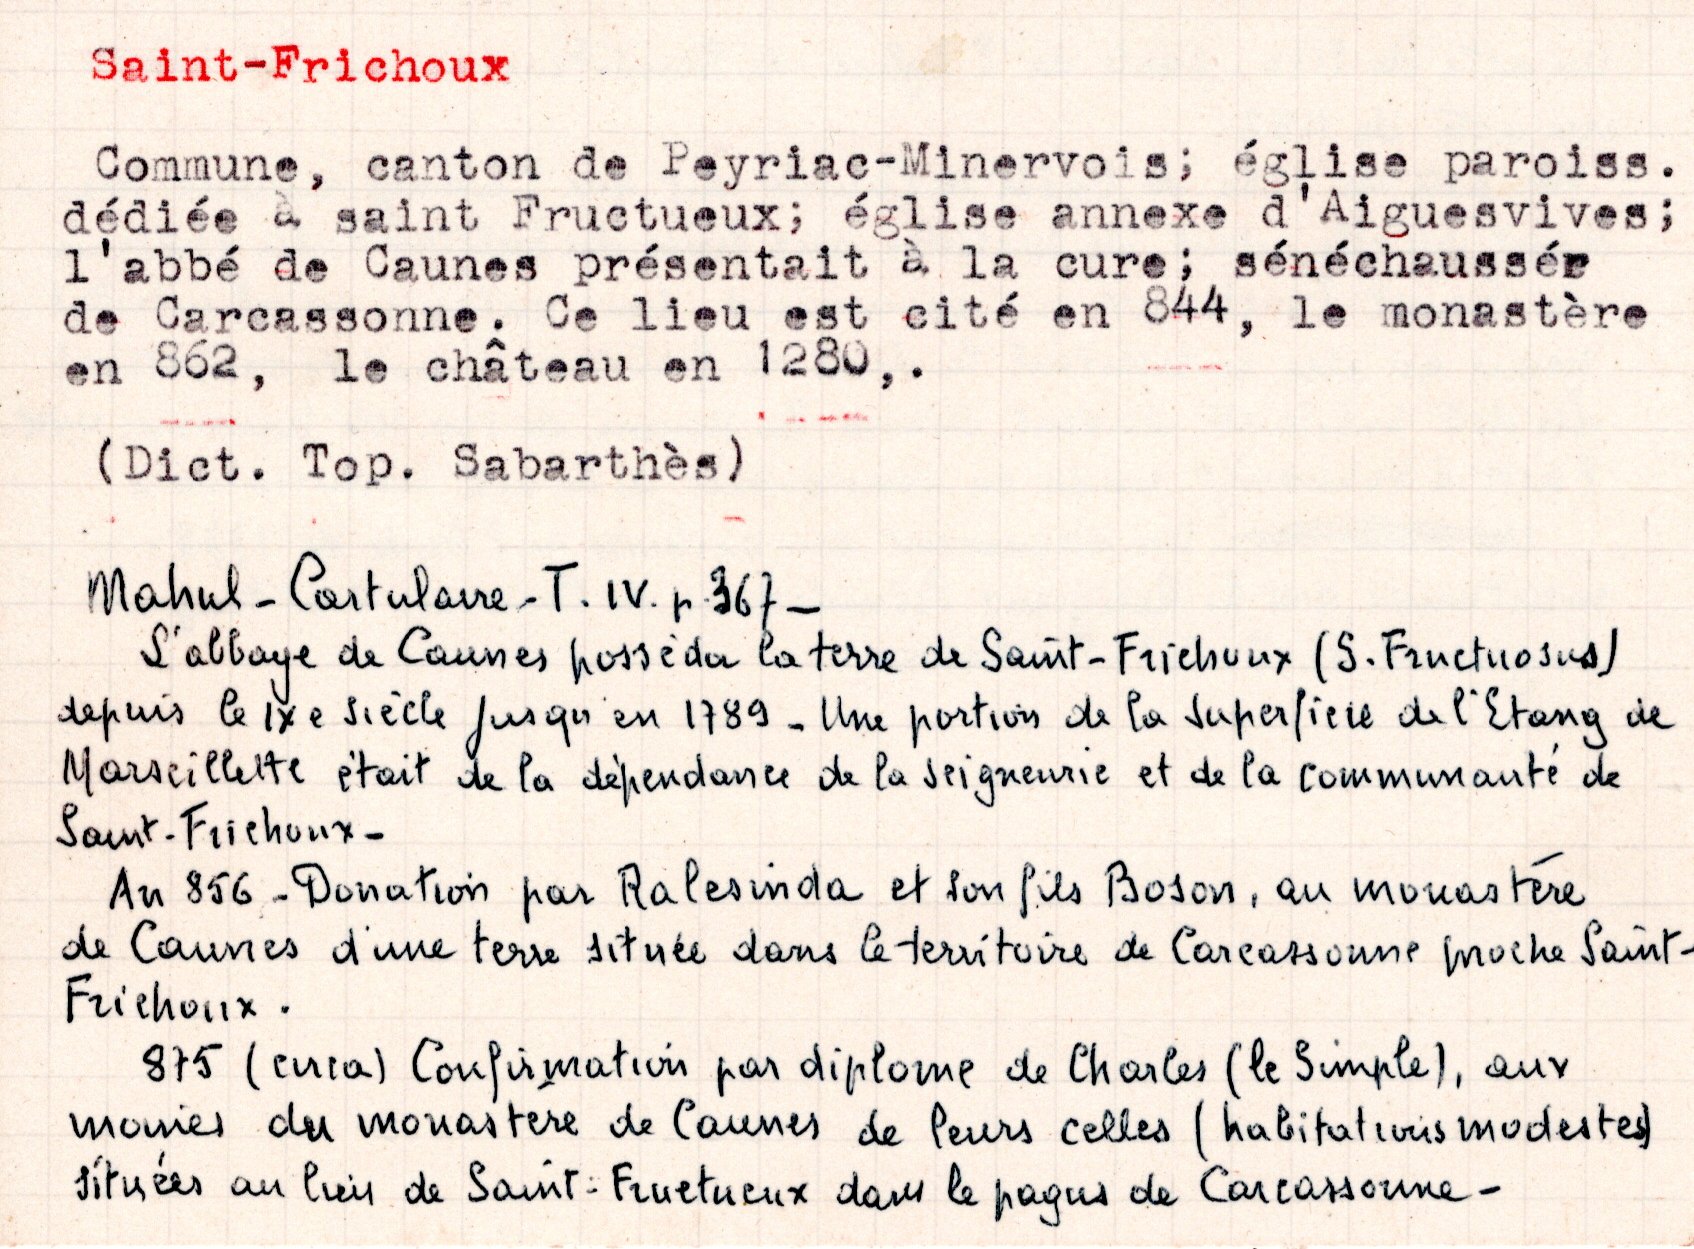 Saint-Frichoux
Commune, canton de Peyriac-Minervois; église paroiss.
dédiée à saint Fructueux; église annexe d'Aiguesvives;
l'abbé de Caunes présentait à la cure; sénéchaussée
de Carcassonne. Ce lieu est cité en 844, le monastère
en 862, le château en 1280,.
(Dict. Top. Sabarthès)
Mahul - Cartulaire - T. IV. p. 367 -
L'abbaye de Caunes posséda la terre de Saint-Frichoux (S. Fructuosus)
depuis le IXe siècle jusqu'en 1789 - Une portion de la superficie de l'Etang de
Marseillette était de la dépendance de la seigneurie et de la communauté de
Saint-Frichoux -
An 856 - Donation par Ralesinda et son fils Boson, au monastère
de Caunes d'une terre située dans le territoire de Carcassonne proche Saint-
Frichoux.
875 (circa) Confirmation par diplome de Charles (le Simple), aux
moines du monastère de Caunes de leurs celles (habitations modestes)
situées au lieu de Saint-Fructueux dans le pagus de Carcassonne -